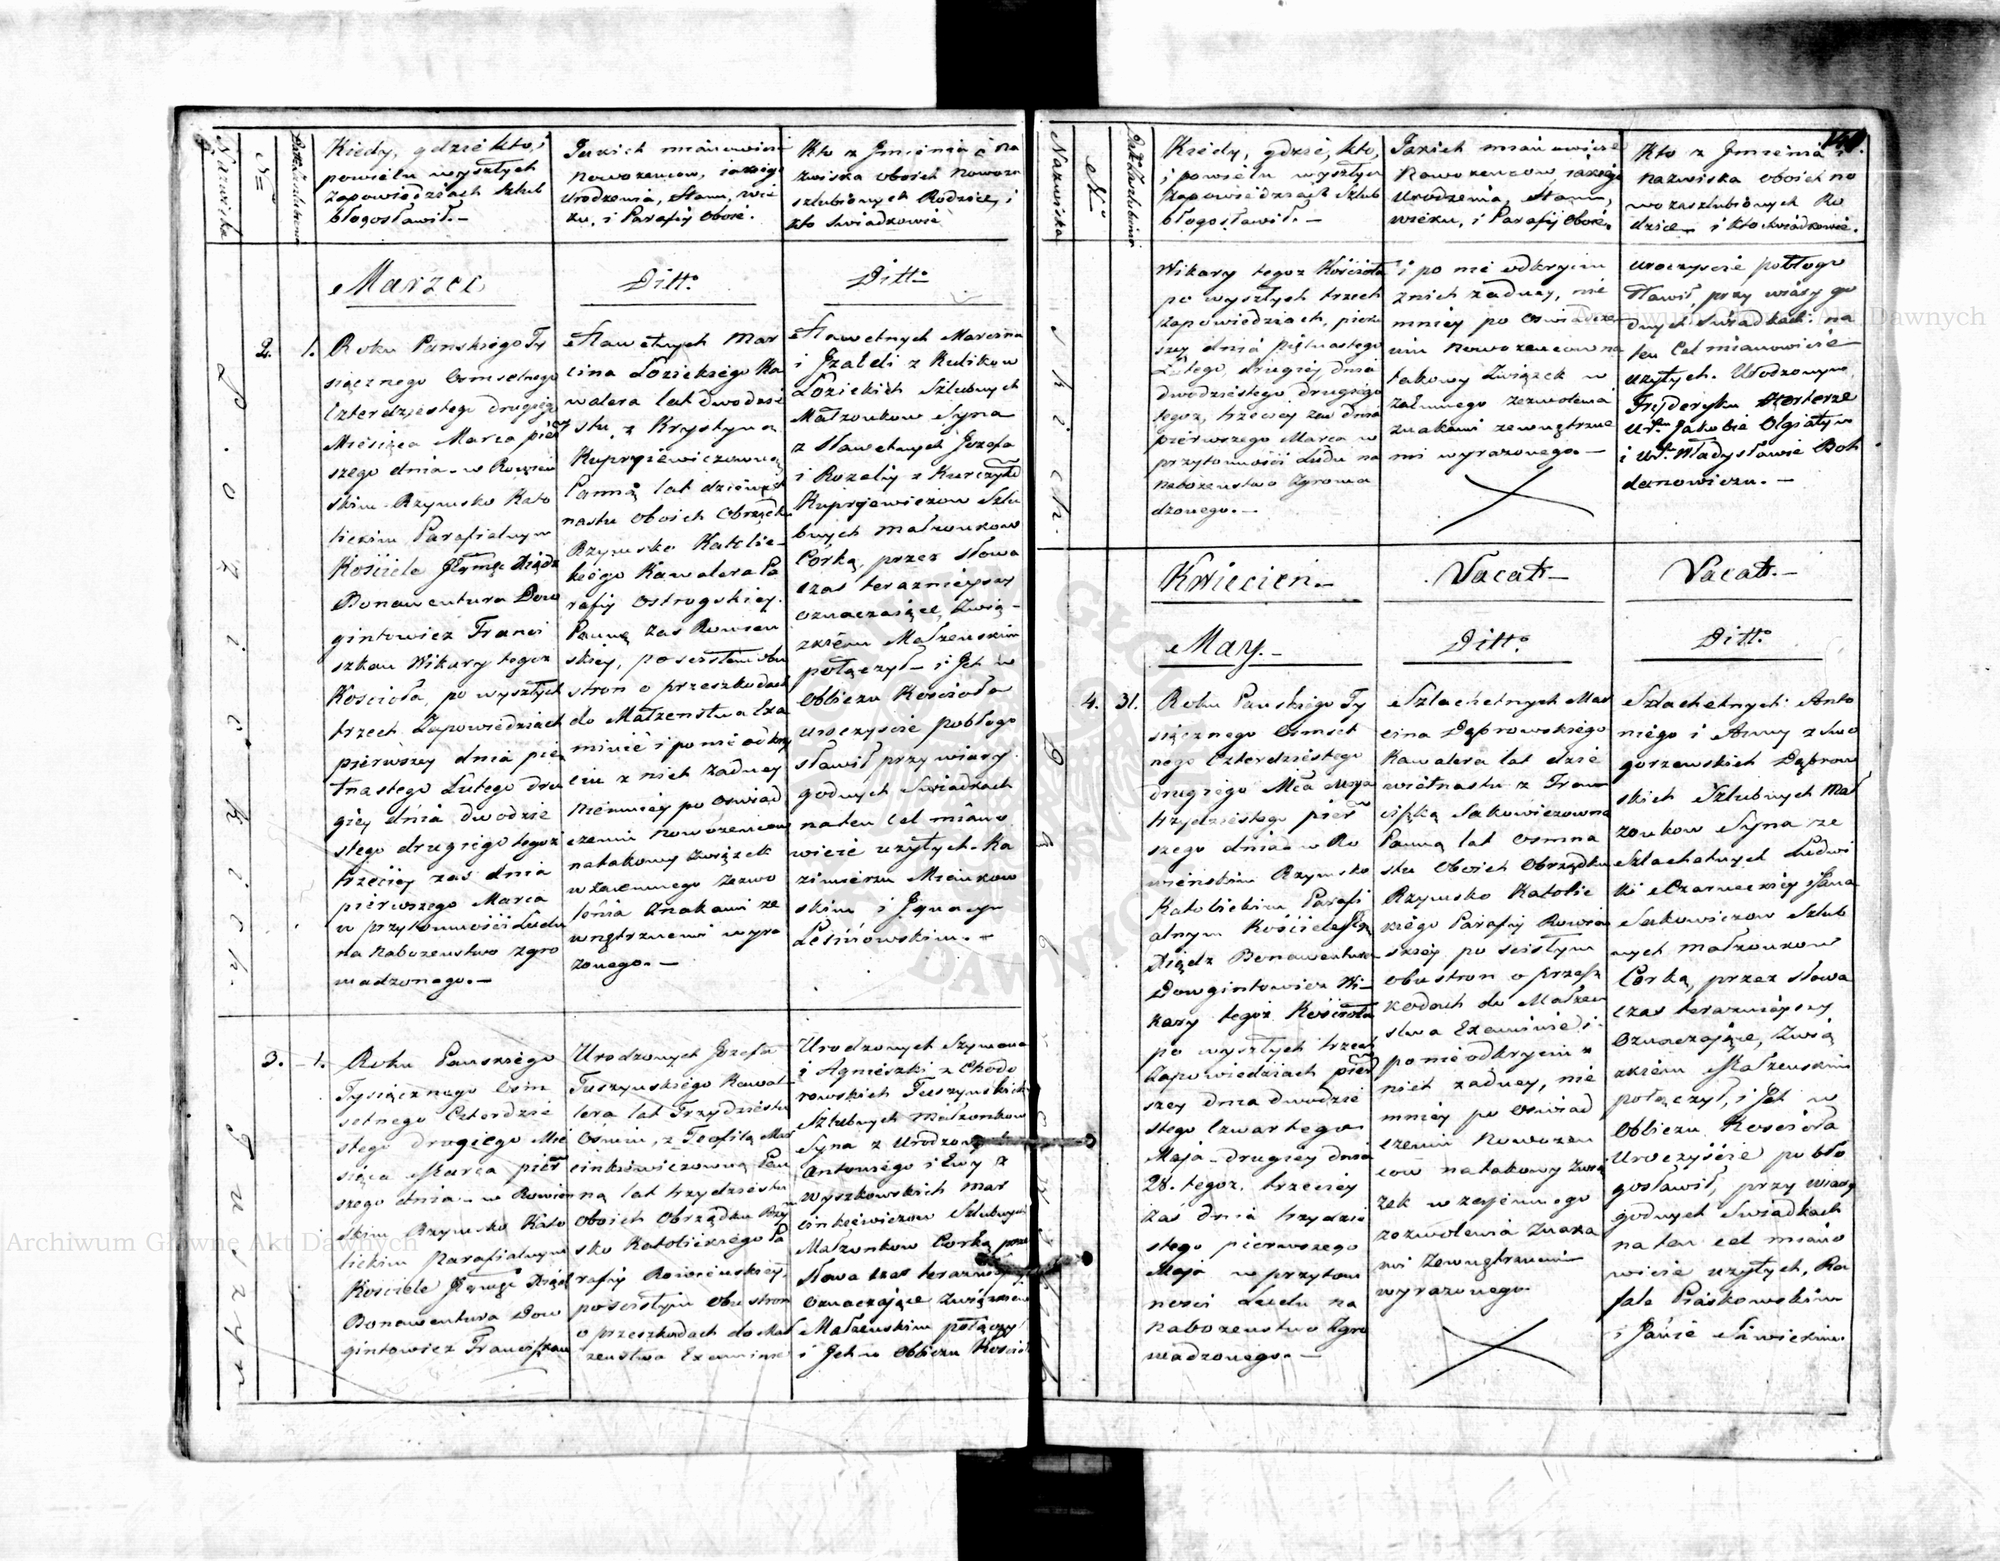 Nazwiska
№
Kiedy, gdzie kto, i
powielu wyszłych
Zapowiedziach Szlub
błogosławił.—
Jakich mianowicie
Nowozencow, iakiego
Urodzenia, Stanu, wie
ku, i Parafii oboie.
Kto z Jmienia i na
zwiska oboich Nowoza
szlubionych Rodzice, i
kto Swiadkowie
Marzec
Ditto
Ditto
2.
1.
Łozickich
Roku Panskiego Ty
siącznego Osmsetnego
Czterdziestego drugiego
Miesiąca Marca pier
szego dnia w Rowien
skim Rzymsko Kato
lickim Parafialnym
Kościele Jegmść Xiądz
Bonawentura Dow
gintowicz Franci
szkan Wikary tegoz
Kościoła, po wyszłych
trzech Zapowiedziach
pierwszey dnia pię
tnastego Lutego dru
giey dnia dwodzie
stego drugiego tegoz
trzeciey zas dnia
pierwszego Marca
w przytomności Ludu
na Nabozenstwo zgro
madzonego.—
Sławetnych Mar
cina Łozickiego Ka
walera lat dwodzie
stu, z Krystyną
Kuprijewiczowną
Panną lat dziewięt
nastu oboich Obrządku
Rzymsko Katolic
kiego Kawalera Pa
rafii Ostrogskiey.
Panną zas Rowien
skiey, po scisłem obu
stron o przeszkodach
do Małzenstwa Exa
minie i po nie odkry
ciu z nich zadney
niemniey po Oswiad
czeniu Nowozencow
natakowy Związek
wzaiemnego zezwo
lenia Znakami ze
wnętrznemi wyra
zonego.—
Sławetnych Marcina
i Gzałdi z Kulikow
Łozickich Szlubnych
Małzonkow Syna
z Sławetnych Jozefa
i Rozalii z Kurczyk
Kuprijewiczow Szlu
bnych małzonkow
Corką, przez słowa
czas teraznieyszy
oznaczaiące, Zwią
zkiem Małzenskim
połączył i Jch w
Obliczu Kościoła
uroczyscie pobłogo
sławił przy wiary
godnych Swiadkach
naten Cel miano
wicie uzytych. Ka
zimierzu Miankow
skim i Jgnacym
Lesniowskim.—
3.
1.
Tuszyn
Roku Panskiego
Tysiącznego Osm
setnego Czterdzie
stego drugiego Mie
siąca Marca pier
szego dnia w Rowien
skim Rzymsko Kato
lickim Parafialnym
Kościele Jegmść Xiądz
Bonawentura Dow
gintowicz Franciszkan
Urodzonych Jozefa
Tuszynskiego Kawa
lera lat Trzydziestu
Osmiu, z Teofilą Mar
cinkiewiczowną Pan
ną lat trzydziestu
oboich Obrządku Rzym
sko Katolickiego Pa
rafii Rowienskiey.
poscisłym obu stron
o przeszkodach do Mał
zenstwa Examinie
Urodzonych Szymona
i Agnieszki z Chodo
rowskich Tuszynskich
Szlubnych małzonkow
Syna z Urodzonych
Antoniego i Ewy z
Wyszkowskich Mar
cinkiewiczow Szlubnych
Małzonkow Corką przez
słowa czas teraznieyszy
Oznaczaiące Związkiem
Małzenskim połączył
i Jch w Obliczu Kościoła
Nazwiska
№
Kiedy, gdzie, kto,
i powielu wyszłych
Zapowiedziach Szlub
błogosławił.—
Jakich mianowicie
Nowozencow iakiego
Urodzenia, Stanu,
wieku, i Parafii oboie.
Kto z Jmienia i
nazwiska oboich no
wozaszlubionych Ro
dzice i kto Swiadkowie.
skich.
Wikary tegoz Kościoła
po wyszłych trzech
Zapowiedziach, pier
szey dnia piętnastego
Lutego, drugiey dnia
dwodziestego drugiego
tegoz, trzeciey zas dnia
pierwszego Marca w
przytomności Ludu na
nabozenstwo Zgroma
dzonego.—
i po nie odkryciu
z nich zadney, nie
mniey po Oswiadcze
niu Nowozencow na
takowy Związek w
zaiemnego zezwolenia
znakami zewnętrzne
mi wyrazonego.—
uroczyscie pobłogo
sławił, przy wiary go
dnych Swiadkach na
ten Cel mianowicie
uzytych. Urodzonym
Fryderyku Herterze
Ur. Jakobie Olgiatym
i Ur. Władysławie Boh
danowiczu.—
Kwiecien.—
Vacat.—
Vacat.—
May.—
Ditto
Ditto
4.
31.
Dąb
Roku Panskiego Ty
siącznego Osmset
nego Czterdziestego
drugiego Mca Maja
trzydziestego pier
szego dnia w Ro
wieńskim Rzymsko
Katolickim Parafi
alnym Kościele Jegmść
Xiądz Bonawentura
Dowgintowicz Wi
kary tegoz Kościoła
po wyszłych trzech
Zapowiedziach pier
szey dnia dwodzie
stego czwartego
Maja drugiey dnia
28. tegoz. trzeciey
zas dnia trzydzie
stego pierwszego
Maja w przytom
ności Ludu na
nabozenstwo Zgro
madzonego.—
Szlachetnych Mar
cina Dąbrowskiego
Kawalera lat dzie
więtnastu z Fran
ciszką Sakowiczowną
Panną lat Osmna
stu oboich Obrządku
Rzymsko Katolic
kiego Parafii Rowien
skiey po scisłym
obustron o przesz
kodach do Małzen
stwa Examinie i
po nie odkryciu z
nich zadney, nie
mniey po Oswiad
czeniu Nowozen
cow natakowy Zwią
zek wzajemnego
zezwolenia Znaka
mi Zewnętrznemi
wyrazonego.
Szlachetnych Anto
niego i Anny z Swo
gorzewskich Dąbrow
skich Szlubnych Mał
zonkow Syna ze
Szlachetnych Ludwi
ki z Czarneckiey i Jana
Sakowiczow Szlub
nych małzonkow
Corką, przez słowa
czas teraznieyszy
Oznaczaiące, Zwią
zkiem Małzenskim
połączył, i Jch w
Obliczu Kościoła
Uroczyście pobło
gosławił, przy wiary
godnych Swiadkach
na ten cel miano
wicie uzytych, Ra
fale Piaskowskim
i Janie
Archiwum Główne Akt Dawnych
Archiwum Główne Akt Dawnych